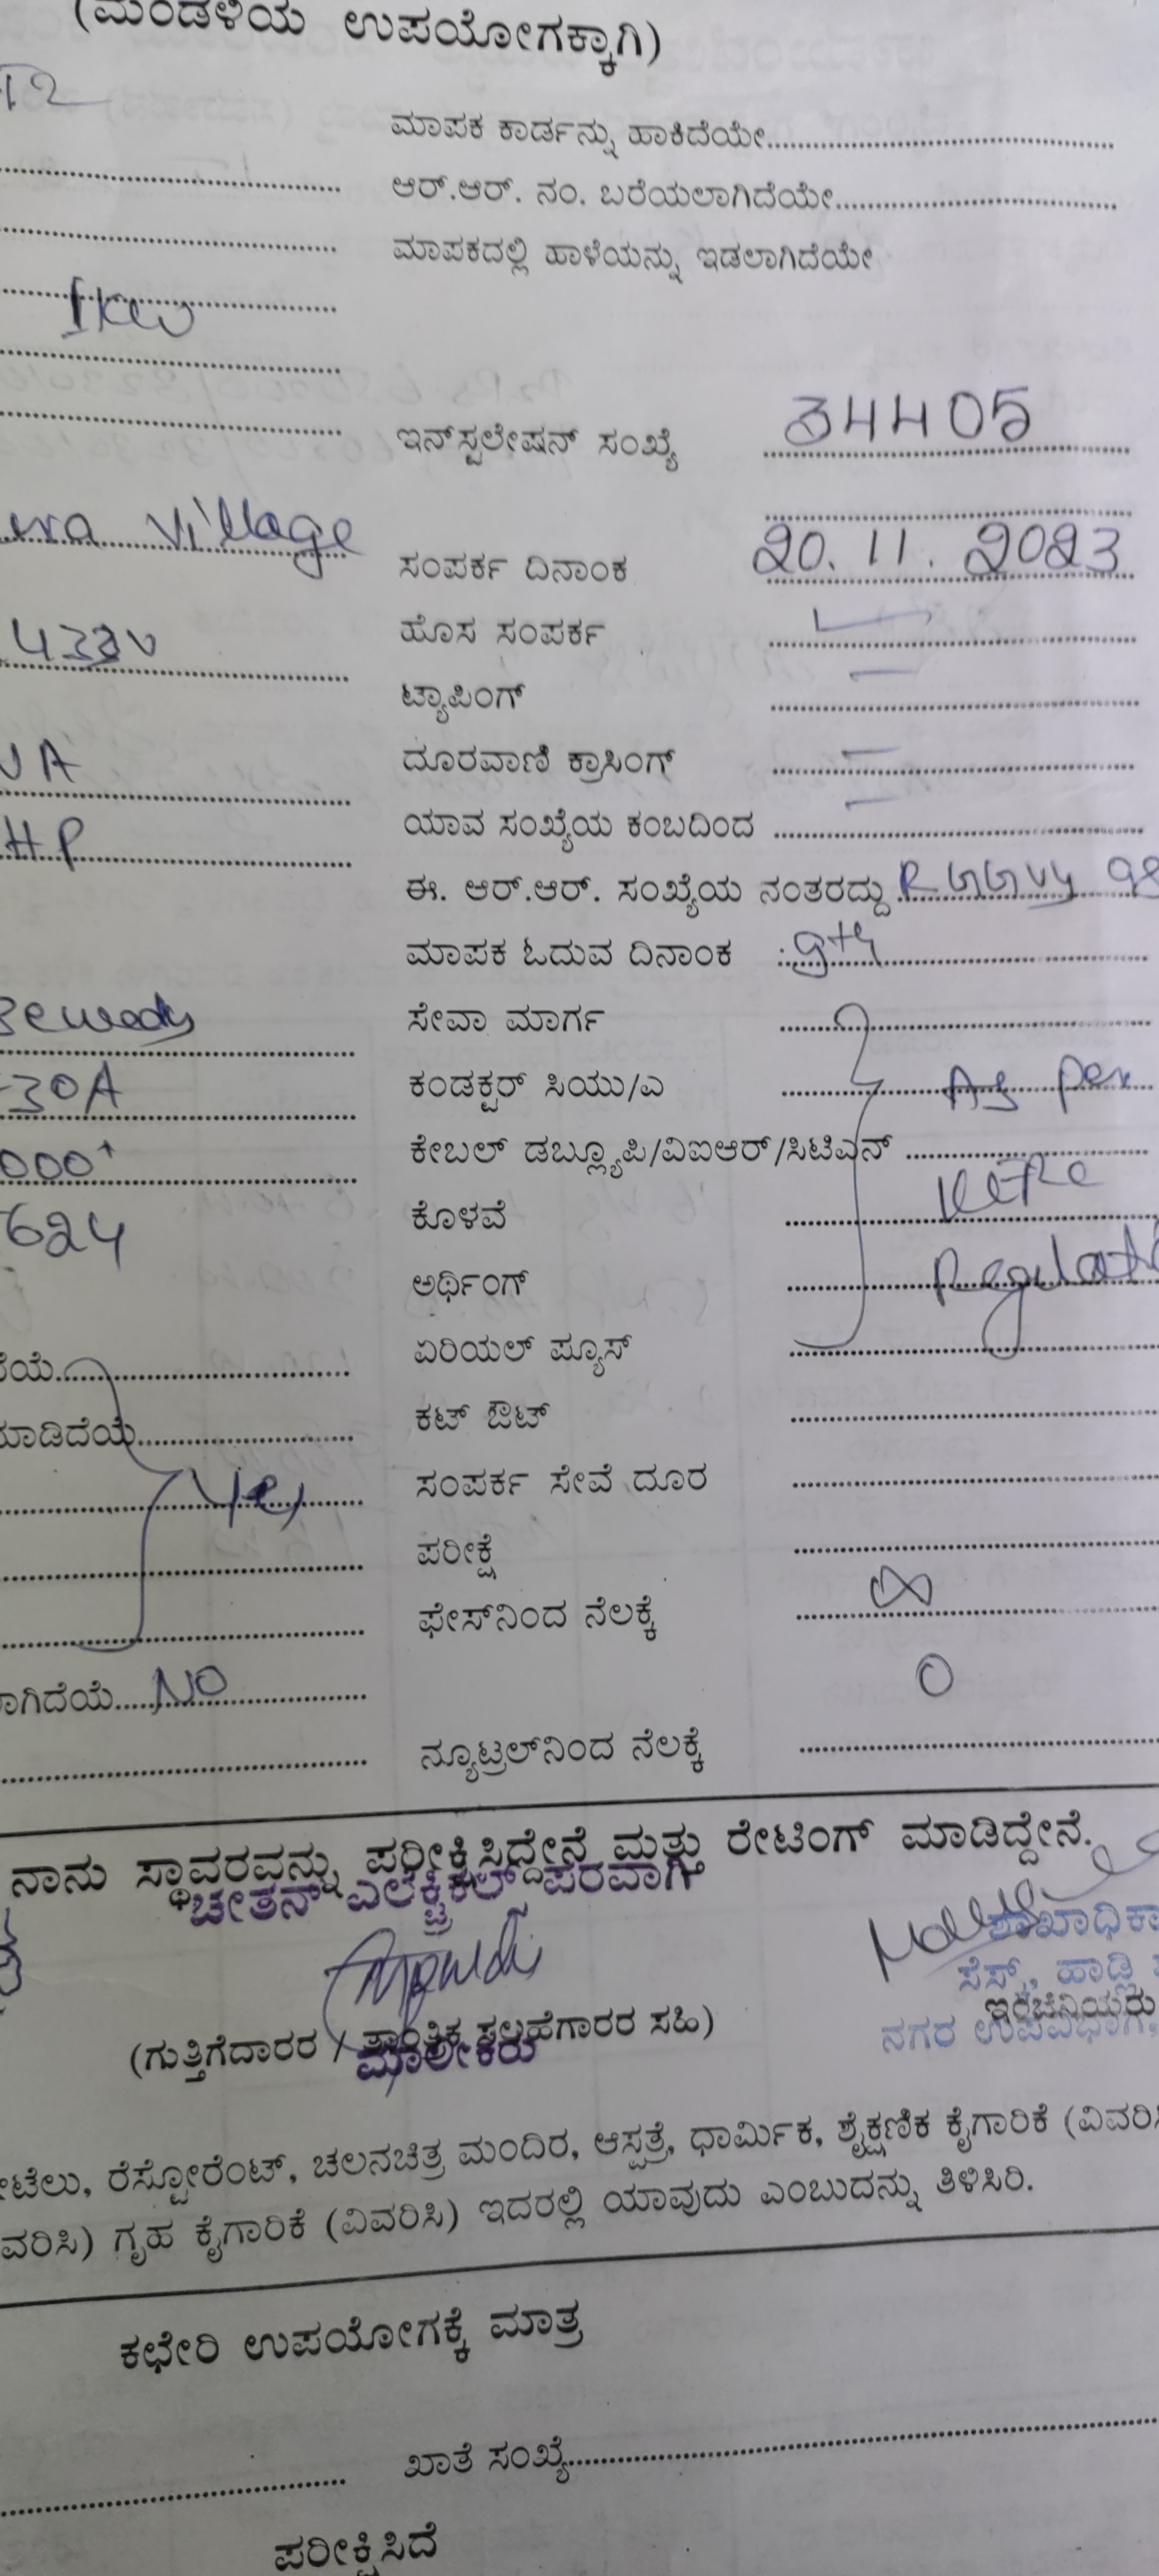 (ಮಂಡಳಿಯ ಉಪಯೋಗಕ್ಕಾಗಿ)
ಮಾಪಕ ಕಾರ್ಡನ್ನು ಹಾಕಿದೆಯೇ
ಆರ್.ಆರ್. ನಂ. ಬರೆಯಲಾಗಿದೆಯೇ
ಮಾಪಕದಲ್ಲಿ ಹಾಳೆಯನ್ನು ಇಡಲಾಗಿದೆಯೇ
1KW
ಇನ್‌ಸ್ಟಲೇಷನ್ ಸಂಖ್ಯೆ 34405
Village ಸಂಪರ್ಕ ದಿನಾಂಕ 20.11.2023
ಹೊಸ ಸಂಪರ್ಕ
433V ಟ್ಯಾಪಿಂಗ್ –
ದೂರವಾಣಿ ಕ್ರಾಸಿಂಗ್ –
HP ಯಾವ ಸಂಖ್ಯೆಯ ಕಂಬದಿಂದ –
ಈ. ಆರ್.ಆರ್. ಸಂಖ್ಯೆಯ ನಂತರದ್ದು RGGVY 98
ಮಾಪಕ ಓದುವ ದಿನಾಂಕ : 9th
ಸೇವಾ ಮಾರ್ಗ
-30A ಕಂಡಕ್ಟರ್ ಸಿಯು/ಎ As per
ಕೇಬಲ್ ಡಬ್ಲ್ಯೂಪಿ/ವಿಐಆರ್/ಸಿಟಿಎನ್
624 ಕೊಳವೆ
ಅರ್ಥಿಂಗ್
ಏರಿಯಲ್ ಪ್ಯೂಸ್
ಕಟ್ ಔಟ್
Yes ಸಂಪರ್ಕ ಸೇವೆ ದೂರ
ಪರೀಕ್ಷೆ
ಫೇಸ್‌ನಿಂದ ನೆಲಕ್ಕೆ ∞
NO 0
ನ್ಯೂಟ್ರಲ್‌ನಿಂದ ನೆಲಕ್ಕೆ
ನಾನು ಸ್ಥಾವರವನ್ನು ಪರೀಕ್ಷಿಸಿದ್ದೇನೆ ಮತ್ತು ರೇಟಿಂಗ್ ಮಾಡಿದ್ದೇನೆ.
ಚೇತನ್ ಎಲೆಕ್ಟ್ರಿಕಲ್ ಪರವಾಗಿ
ಶಾಖಾಧಿಕಾ
ಸೆಸ್ಕ್, ಹಾಡ್ಲಿ
(ಗುತ್ತಿಗೆದಾರರ / ತಾಂತ್ರಿಕ ಸಲಹೆಗಾರರ ಸಹಿ)
ಮಾಲೀಕರು
ನಗರ ಉಪವಿಭಾಗ,
ರೆಸ್ಟೋರೆಂಟ್, ಚಲನಚಿತ್ರ ಮಂದಿರ, ಆಸ್ಪತ್ರೆ, ಧಾರ್ಮಿಕ, ಶೈಕ್ಷಣಿಕ ಕೈಗಾರಿಕೆ (ವಿವರಿಸಿ
ವರಿಸಿ) ಗೃಹ ಕೈಗಾರಿಕೆ (ವಿವರಿಸಿ) ಇದರಲ್ಲಿ ಯಾವುದು ಎಂಬುದನ್ನು ತಿಳಿಸಿರಿ.
ಕಛೇರಿ ಉಪಯೋಗಕ್ಕೆ ಮಾತ್ರ
ಖಾತೆ ಸಂಖ್ಯೆ
ಪರೀಕ್ಷಿಸಿದೆ